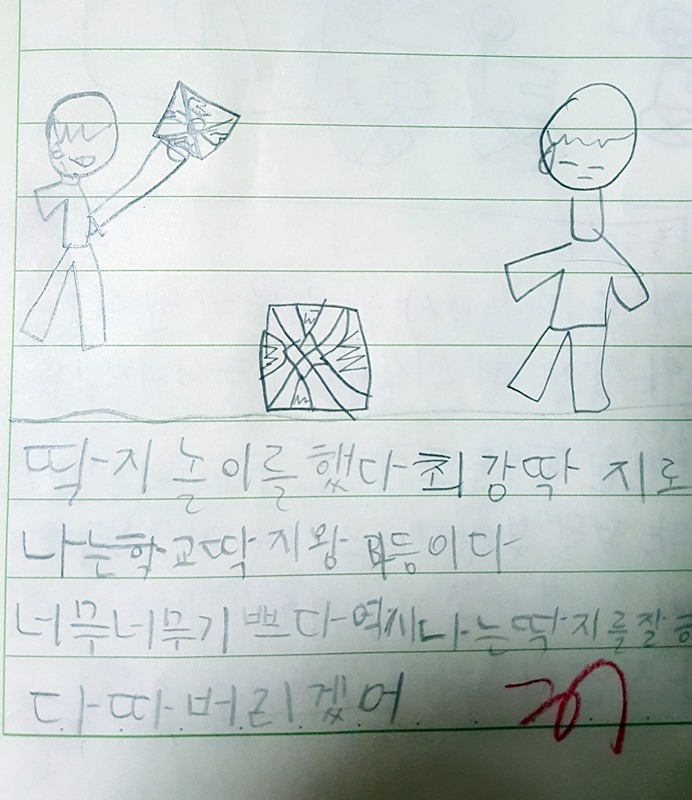 딱지 놀이를 했다 최강딱 지로
나는학교딱지왕 1등이다
너무너무기쁘다 역시나는딱지를잘
다따버리겠어